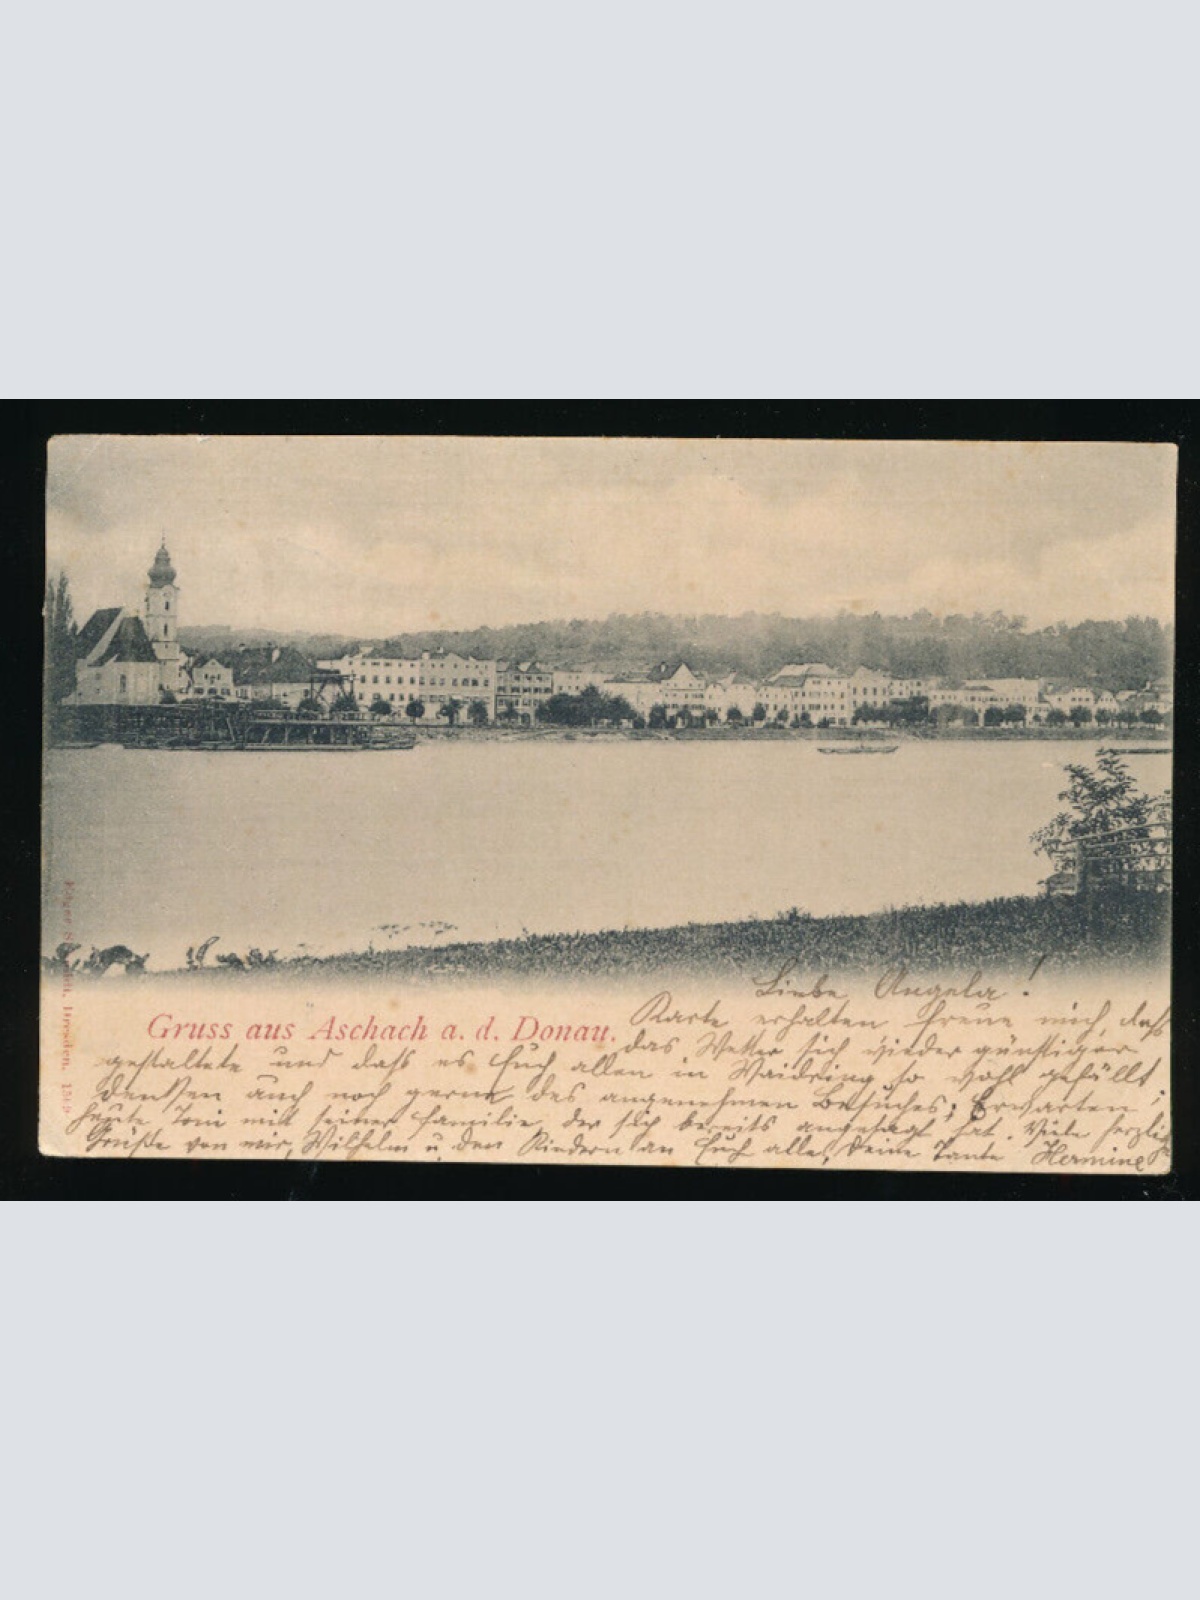 Liebe Angela!
Gruss aus Aschach a. d. Donau.
Karte erhalten freue mich, daß
das Wetter sich wieder günstiger
gestaltete und daß es Euch allen in Waidring so wohl gefällt;
denken auch noch gerne des angenehmen Besuches; Erwarten
heute Toni mit seiner Familie der sich bereits angesagt hat. Viele herzliche
Grüße von mir, Wilhelm u. den Kindern an Euch alle, Deine Tante Hermine
Dresden.